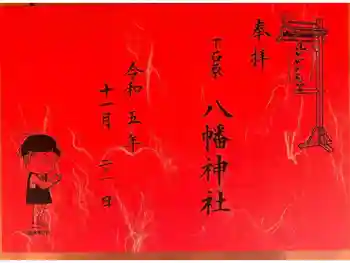 奉拝
下石原
八幡神社
令和五年
十一月二二日